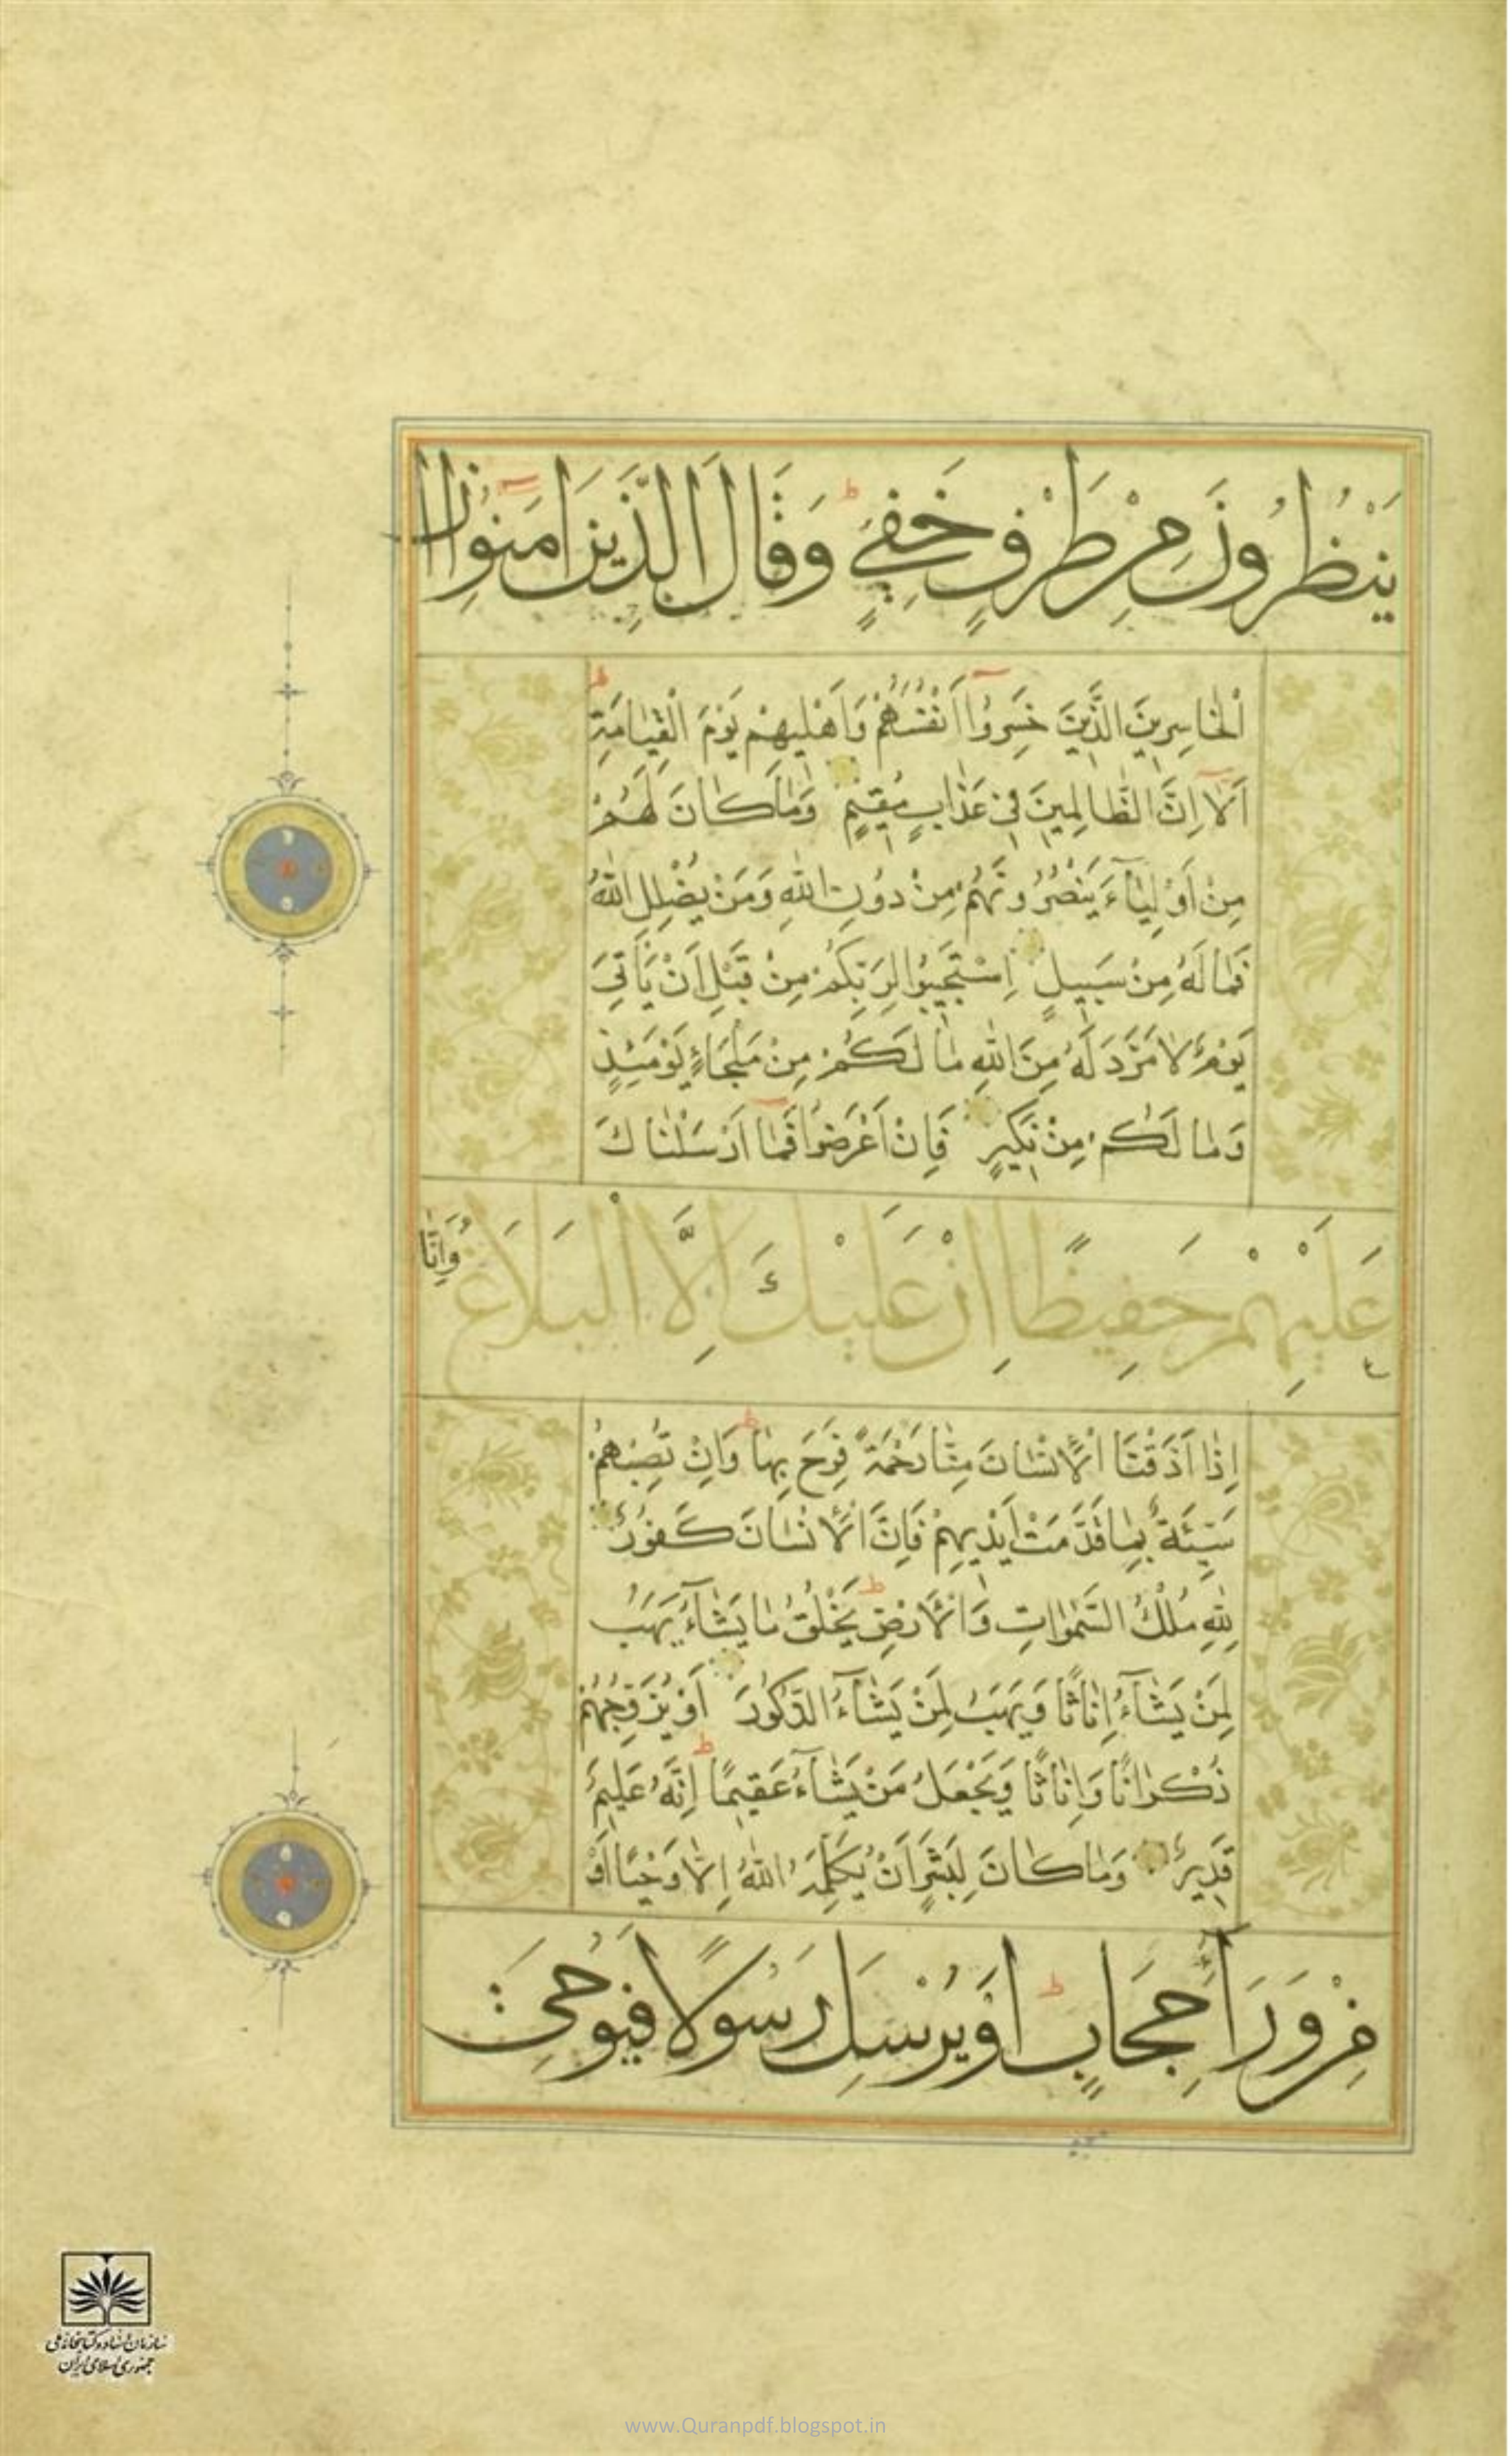 يَنْظُرُونَ مِنْ طَرْفٍ خَفِيٍّ وَقَالَ الَّذِينَ امَنُوا اِنَّ
اْلخَاسِرِينَ الَّذِينَ خَسِرُوا اَنْفُسَهُمْ وَاَهْلِيهِمْ يَوْمَ الْقِيَامَةِ
اَلَا اِنَّ الظَّالِمِينَ فِي عَذَابٍ مُقِيمٍ وَمَا كَانَ لَهُمْ
مِنْ اَوْلِيَآءَ يَنْصُرُونَهُمْ مِنْ دُونِ اللهِ وَمَنْ يُضْلِلِ اللهُ
فَمَا لَهُ مِنْ سَبِيلٍ اِسْتَجِيبُوا لِرَبِّكُمْ مِنْ قَبْلِ اَنْ يَأْتِيَ
يَوْمٌ لَا مَرَدَّ لَهُ مِنَ اللهِ مَا لَكُمْ مِنْ مَلْجَاءٍ يَوْمَئِذٍ
وَمَا لَكُمْ مِنْ نَكِيرٍ فَاِنْ اَعْرَضُوا فَمَا اَرْسَلْنَاكَ
عَلَيْهِمْ حَفِيظًا اِنْ عَلَيْكَ اِلَّا الْبَلَاغُ وَاِنَّا
اِذَا اَذَقْنَا اْلاِنْسَانَ مِنَّا رَحْمَةً فَرِحَ بِهَا وَاِنْ تُصِبْهُمْ
سَيِّئَةٌ بِمَا قَدَّمَتْ اَيْدِيهِمْ فَاِنَّ اْلاِنْسَانَ كَفُورٌ
لِلّٰهِ مُلْكُ السَّمٰوَاتِ وَاْلاَرْضِ يَخْلُقُ مَا يَشَآءُ يَهَبُ
لِمَنْ يَشَآءُ اِنَاثًا وَيَهَبُ لِمَنْ يَشَآءُ الذُّكُورَ اَوْ يُزَوِّجُهُمْ
ذُكْرَانًا وَاِنَاثًا وَيَجْعَلُ مَنْ يَشَآءُ عَقِيمًا اِنَّهُ عَلِيمٌ
قَدِيرٌ وَمَا كَانَ لِبَشَرٍ اَنْ يُكَلِّمَهُ اللهُ اِلَّا وَحْيًا اَوْ
مِنْ وَرَآءِ حِجَابٍ اَوْ يُرْسِلَ رَسُولًا فَيُوحِيَ
سازمان اسناد و کتابخانه ملی
جمهوری اسلامی ایران
www.Quranpdf.blogspot.in